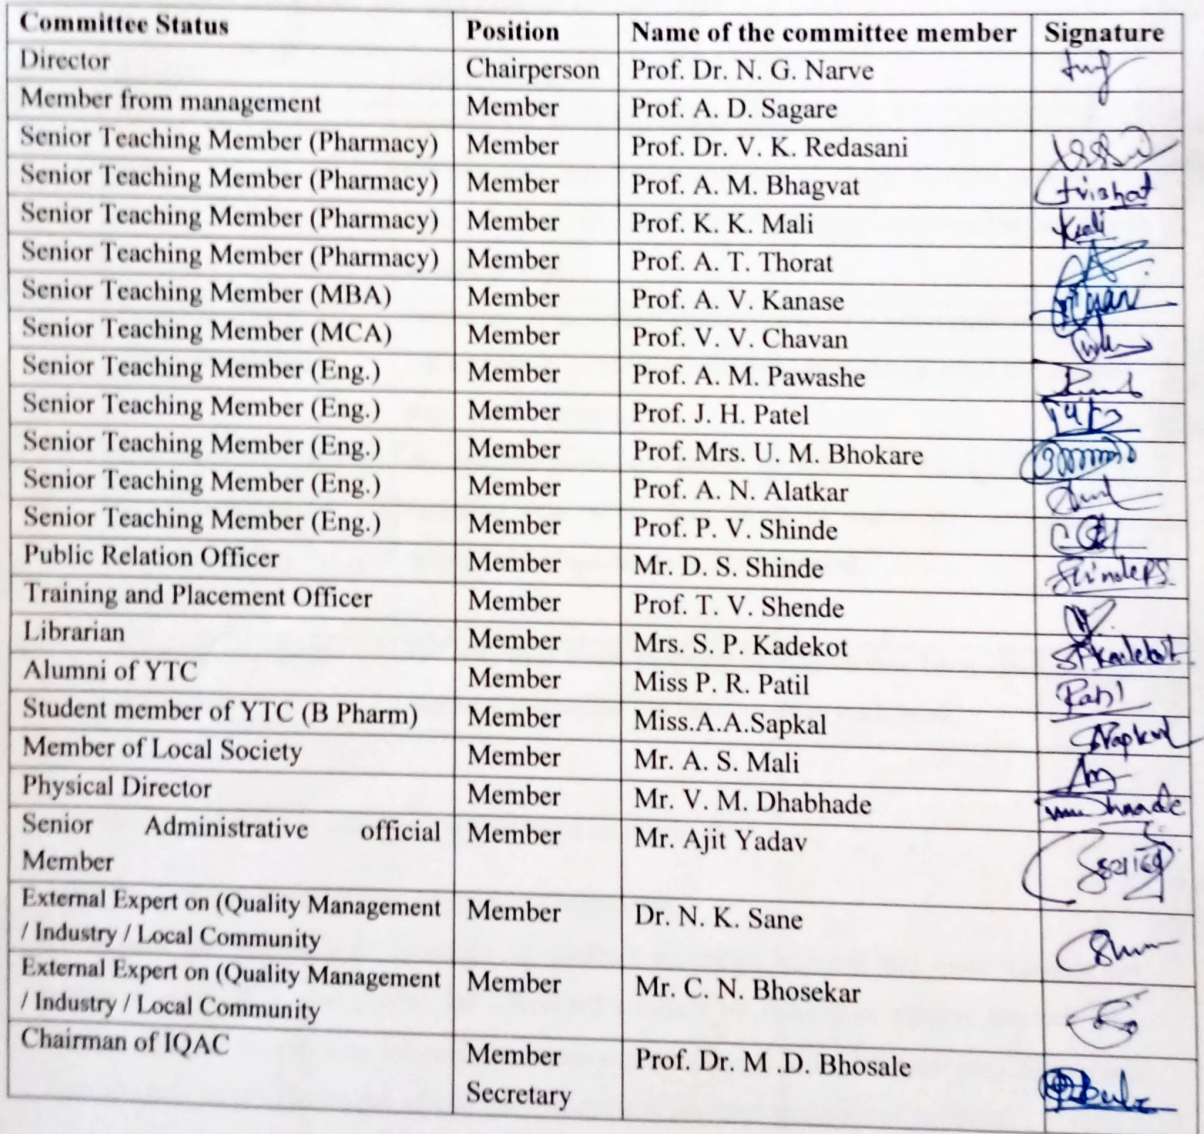 Committee Status Position Name of the committee member Signature
Director Chairperson Prof. Dr. N. G. Narve
Member from management Member Prof. A. D. Sagare
Senior Teaching Member (Pharmacy) Member Prof. Dr. V. K. Redasani
Senior Teaching Member (Pharmacy) Member Prof. A. M. Bhagvat
Senior Teaching Member (Pharmacy) Member Prof. K. K. Mali
Senior Teaching Member (Pharmacy) Member Prof. A. T. Thorat
Senior Teaching Member (MBA) Member Prof. A. V. Kanase
Senior Teaching Member (MCA) Member Prof. V. V. Chavan
Senior Teaching Member (Eng.) Member Prof. A. M. Pawashe
Senior Teaching Member (Eng.) Member Prof. J. H. Patel
Senior Teaching Member (Eng.) Member Prof. Mrs. U. M. Bhokare
Senior Teaching Member (Eng.) Member Prof. A. N. Alatkar
Senior Teaching Member (Eng.) Member Prof. P. V. Shinde
Public Relation Officer Member Mr. D. S. Shinde
Training and Placement Officer Member Prof. T. V. Shende
Librarian Member Mrs. S. P. Kadekot SPKadekot
Alumni of YTC Member Miss P. R. Patil
Student member of YTC (B Pharm) Member Miss.A.A.Sapkal
Member of Local Society Member Mr. A. S. Mali
Physical Director Member Mr. V. M. Dhabhade
Senior Administrative official Member Mr. Ajit Yadav
Member
External Expert on (Quality Management Member Dr. N. K. Sane
/ Industry / Local Community
External Expert on (Quality Management Member Mr. C. N. Bhosekar
/ Industry / Local Community
Chairman of IQAC Member Prof. Dr. M .D. Bhosale
Secretary